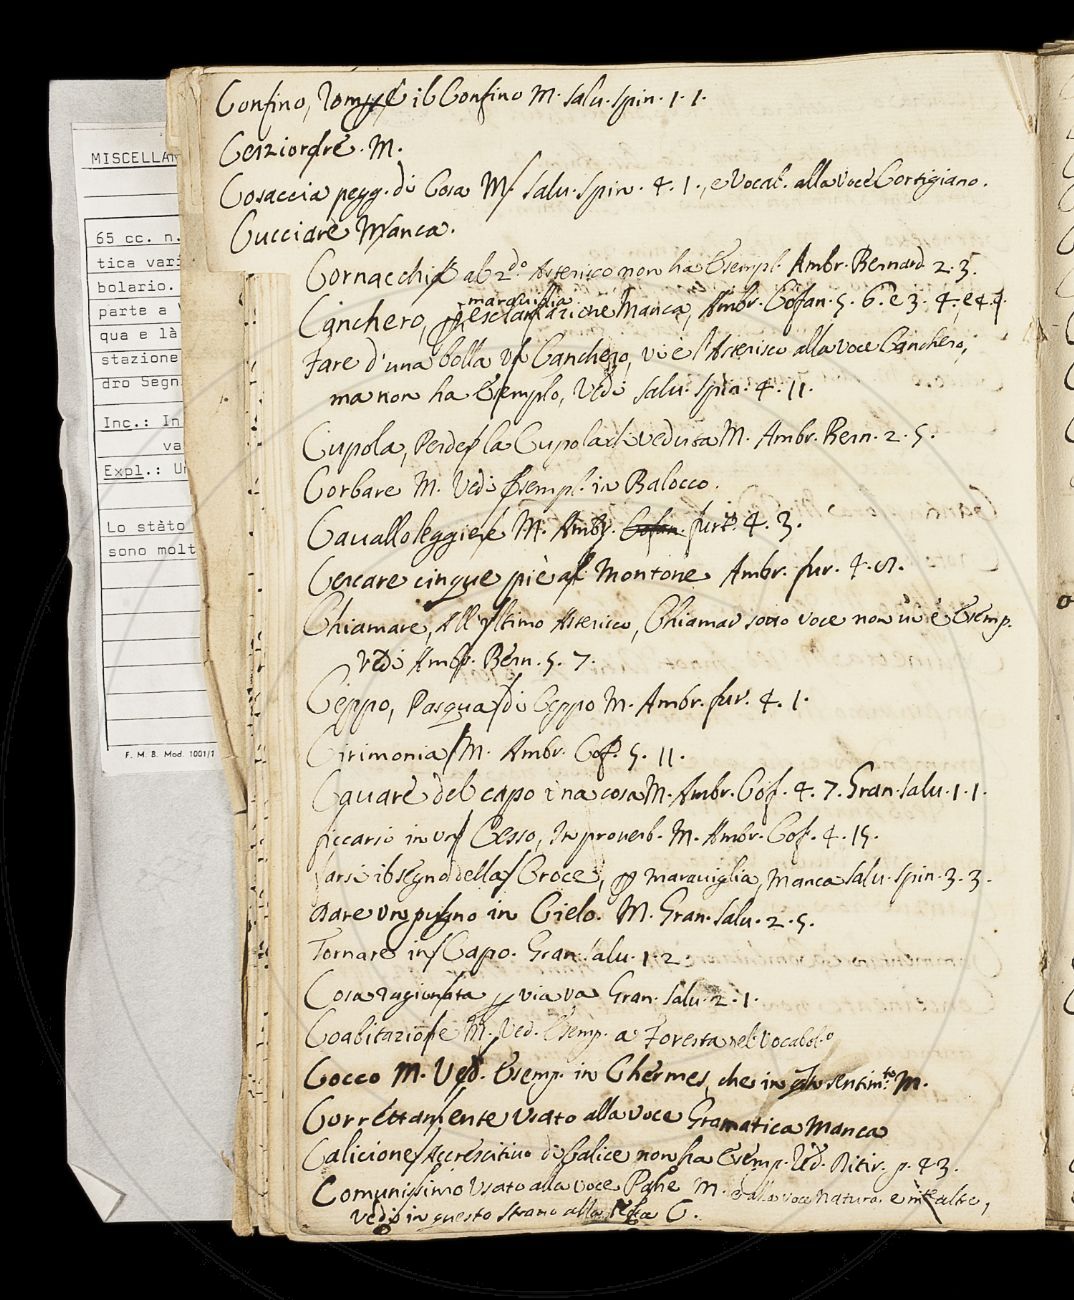 Confino, Romper il Confino M. Salu. Spin. 1. 1.
M.
Cosaccia pegg. di Cosa M. Salu. Spin. 4. 1., e Vocab. alla voce Cortigiano.
Cucciare Manca.
Cornacchia al 2.do Asterisco non ha Esempl. Ambr. Bernard. 2. 3.
maraviglia
Canchero, esclamazione Manca, Ambr. Cofan. 5. 6. e 3. 4. e 4. 9.
Fare d'una bolla un Canchero, vi è l'Asterisco alla voce Canchero,
ma non ha Esemplo, Vedi Salu. Spin. 4. 11.
Cupola, Perder la Cupola di veduta M. Ambr. Bern. 2. 5.
Corbare M. Vedi Esempl. in Balocco.
Cavalloleggiere M. Ambr. Cofan. furt. 4. 3.
Cercare cinque piè al Montone Ambr. fur. 4.
Chiamare, All'ultimo Asterisco, Chiamar sotto voce non vi è Esemp.
Vedi Ambr. Bern. 5. 7.
Ceppo, Pasqua di Ceppo M. Ambr. fur. 4. 1.
Cirimonia M. Ambr. Cof. 5. 11.
Cavare del capo una cosa M. Ambr. Cof. 4. 7. Gran. Salu. 1. 1.
ficcarsi in un Cesso, In proverb. M. Ambr. Cof. 4. 15.
farsi il segno della Croce, p maraviglia, Manca Salu. Spin. 3. 3.
Dare un pugno in Cielo. M. Gran. Salu. 2. 5.
Tornare in Capo. Gran. Salu. 1. 2.
Cosa ragionata p via va Gran. Salu. 2. 1.
Coabitazione M. Ved. Esemp. a Foresta nel Vocabol.o
Cocco M. Ved. Esemp. in Chermes, che in sentim.to M.
Correttamente Usato alla voce Gramatica Manca
Calicione Accrescitivo di Calice non ha Esemp. Ved. Ritir. p. 43.
Comunissimo Usato alla voce Pane M. e alla voce Natura, e in altre,
vedi in questo Strano alla C.
MISCELLAN
65 cc. n.
tica vari
bolario.
parte a V
qua e là
stazione
dro Segn
Inc.: In
va
Expl.: Un
Lo stato
sono molt
F. M. B. Mod. 1001/1